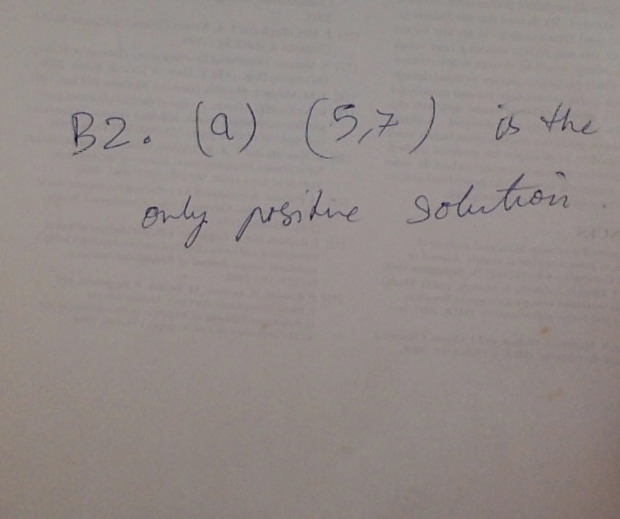 B2. (a) (5,7) is the
only positive solution.